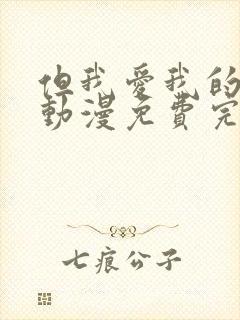 但我愛我的
動漫免費完
七痕公子